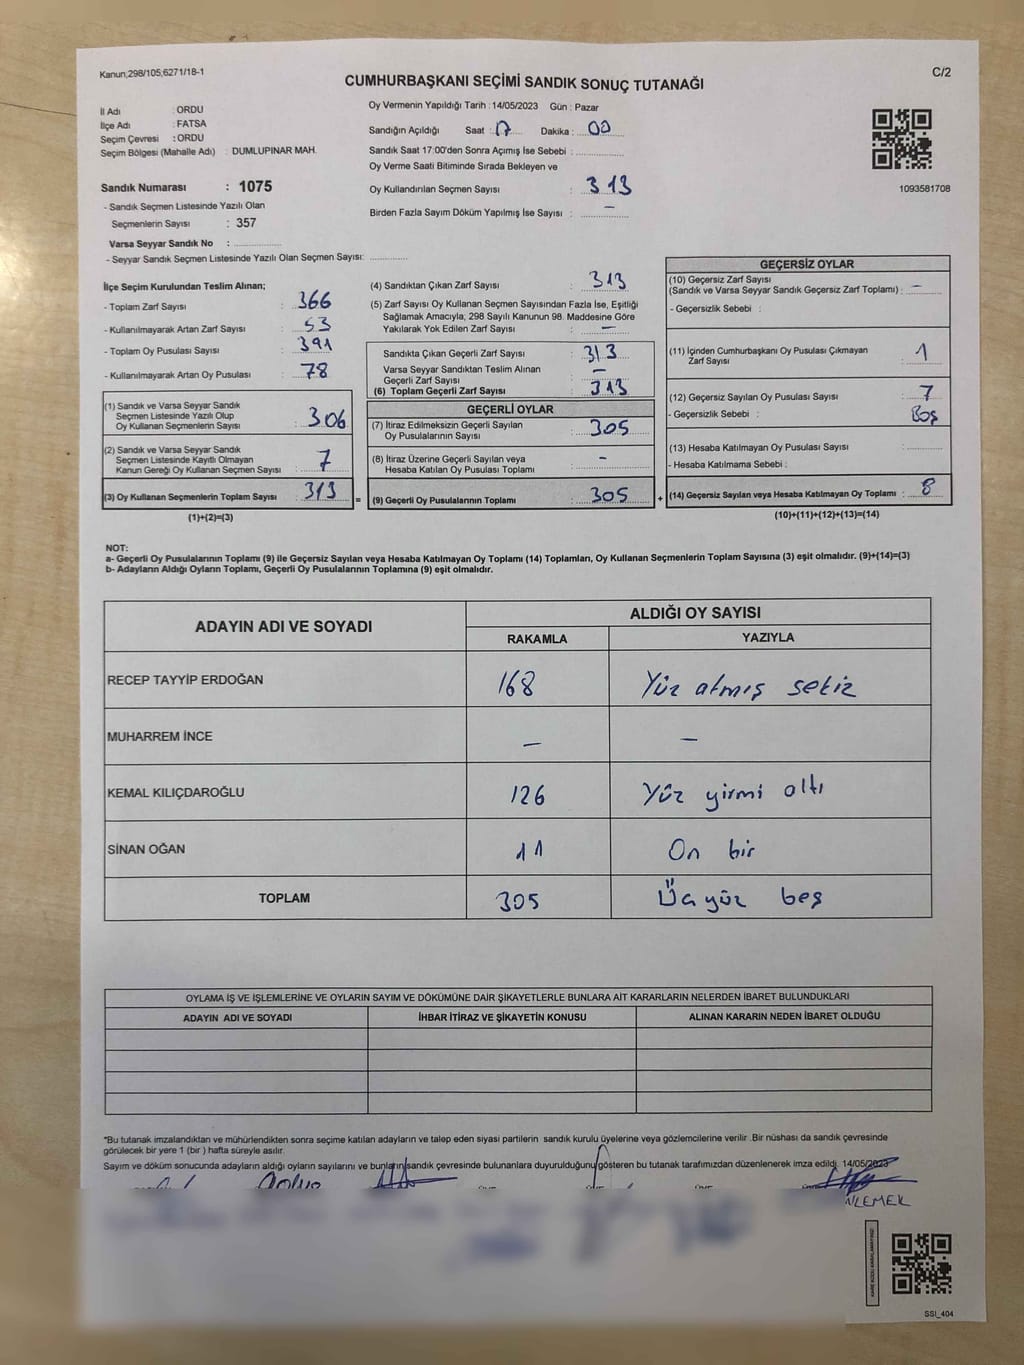 Kanun;298/105;6271/18-1
C/2
CUMHURBAŞKANI SEÇİMİ SANDIK SONUÇ TUTANAĞI
İl Adı : ORDU
İlçe Adı : FATSA
Seçim Çevresi : ORDU
Seçim Bölgesi (Mahalle Adı) : DUMLUPINAR MAH.
Sandık Numarası : 1075
- Sandık Seçmen Listesinde Yazılı Olan
Seçmenlerin Sayısı : 357
Varsa Seyyar Sandık No :
- Seyyar Sandık Seçmen Listesinde Yazılı Olan Seçmen Sayısı:
Oy Vermenin Yapıldığı Tarih : 14/05/2023 Gün : Pazar
Sandığın Açıldığı Saat : 17 Dakika : 00
Sandık Saat 17:00'den Sonra Açımış İse Sebebi :
Oy Verme Saati Bitiminde Sırada Bekleyen ve
Oy Kullandırılan Seçmen Sayısı : 313
Birden Fazla Sayım Döküm Yapılmış İse Sayısı : –
1093581708
İlçe Seçim Kurulundan Teslim Alınan;
- Toplam Zarf Sayısı : 366
- Kullanılmayarak Artan Zarf Sayısı : 53
- Toplam Oy Pusulası Sayısı : 391
- Kullanılmayarak Artan Oy Pusulası : 78
(1) Sandık ve Varsa Seyyar Sandık
Seçmen Listesinde Yazılı Olup
Oy Kullanan Seçmenlerin Sayısı : 306
(2) Sandık ve Varsa Seyyar Sandık
Seçmen Listesinde Kayıtlı Olmayan
Kanun Gereği Oy Kullanan Seçmen Sayısı : 7
(3) Oy Kullanan Seçmenlerin Toplam Sayısı : 313 =
(1)+(2)=(3)
(4) Sandıktan Çıkan Zarf Sayısı : 313
(5) Zarf Sayısı Oy Kullanan Seçmen Sayısından Fazla İse, Eşitliği
Sağlamak Amacıyla; 298 Sayılı Kanunun 98. Maddesine Göre
Yakılarak Yok Edilen Zarf Sayısı : –
Sandıkta Çıkan Geçerli Zarf Sayısı : 313
Varsa Seyyar Sandıktan Teslim Alınan
Geçerli Zarf Sayısı : –
(6) Toplam Geçerli Zarf Sayısı : 313
GEÇERLİ OYLAR
(7) İtiraz Edilmeksizin Geçerli Sayılan
Oy Pusulalarının Sayısı : 305
(8) İtiraz Üzerine Geçerli Sayılan veya
Hesaba Katılan Oy Pusulası Toplamı : –
(9) Geçerli Oy Pusulalarının Toplamı : 305 +
GEÇERSİZ OYLAR
(10) Geçersiz Zarf Sayısı
(Sandık ve Varsa Seyyar Sandık Geçersiz Zarf Toplamı) : –
- Geçersizlik Sebebi :
(11) İçinden Cumhurbaşkanı Oy Pusulası Çıkmayan
Zarf Sayısı : 1
(12) Geçersiz Sayılan Oy Pusulası Sayısı : 7
- Geçersizlik Sebebi : Boş
(13) Hesaba Katılmayan Oy Pusulası Sayısı :
- Hesaba Katılmama Sebebi :
(14) Geçersiz Sayılan veya Hesaba Katılmayan Oy Toplamı : 8
(10)+(11)+(12)+(13)=(14)
NOT:
a- Geçerli Oy Pusulalarının Toplamı (9) ile Geçersiz Sayılan veya Hesaba Katılmayan Oy Toplamı (14) Toplamları, Oy Kullanan Seçmenlerin Toplam Sayısına (3) eşit olmalıdır. (9)+(14)=(3)
b- Adayların Aldığı Oyların Toplamı, Geçerli Oy Pusulalarının Toplamına (9) eşit olmalıdır.
ADAYIN ADI VE SOYADI
ALDIĞI OY SAYISI
RAKAMLA YAZIYLA
RECEP TAYYİP ERDOĞAN 168 Yüz atmış sekiz
MUHARREM İNCE – –
KEMAL KILIÇDAROĞLU 126 Yüz yirmi altı
SİNAN OĞAN 11 On bir
TOPLAM 305 Üçyüz beş
OYLAMA İŞ VE İŞLEMLERİNE VE OYLARIN SAYIM VE DÖKÜMÜNE DAİR ŞİKAYETLERLE BUNLARA AİT KARARLARIN NELERDEN İBARET BULUNDUKLARI
ADAYIN ADI VE SOYADI İHBAR İTİRAZ VE ŞİKAYETİN KONUSU ALINAN KARARIN NEDEN İBARET OLDUĞU
*Bu tutanak imzalandıktan ve mühürlendikten sonra seçime katılan adayların ve talep eden siyasi partilerin sandık kurulu üyelerine veya gözlemcilerine verilir .Bir nüshası da sandık çevresinde
görülecek bir yere 1 (bir ) hafta süreyle asılır.
Sayım ve döküm sonucunda adayların aldığı oyların sayılarını ve bunların sandık çevresinde bulunanlara duyurulduğunu gösteren bu tutanak tarafımızdan düzenlenerek imza edildi. 14/05/2023
SSI_404